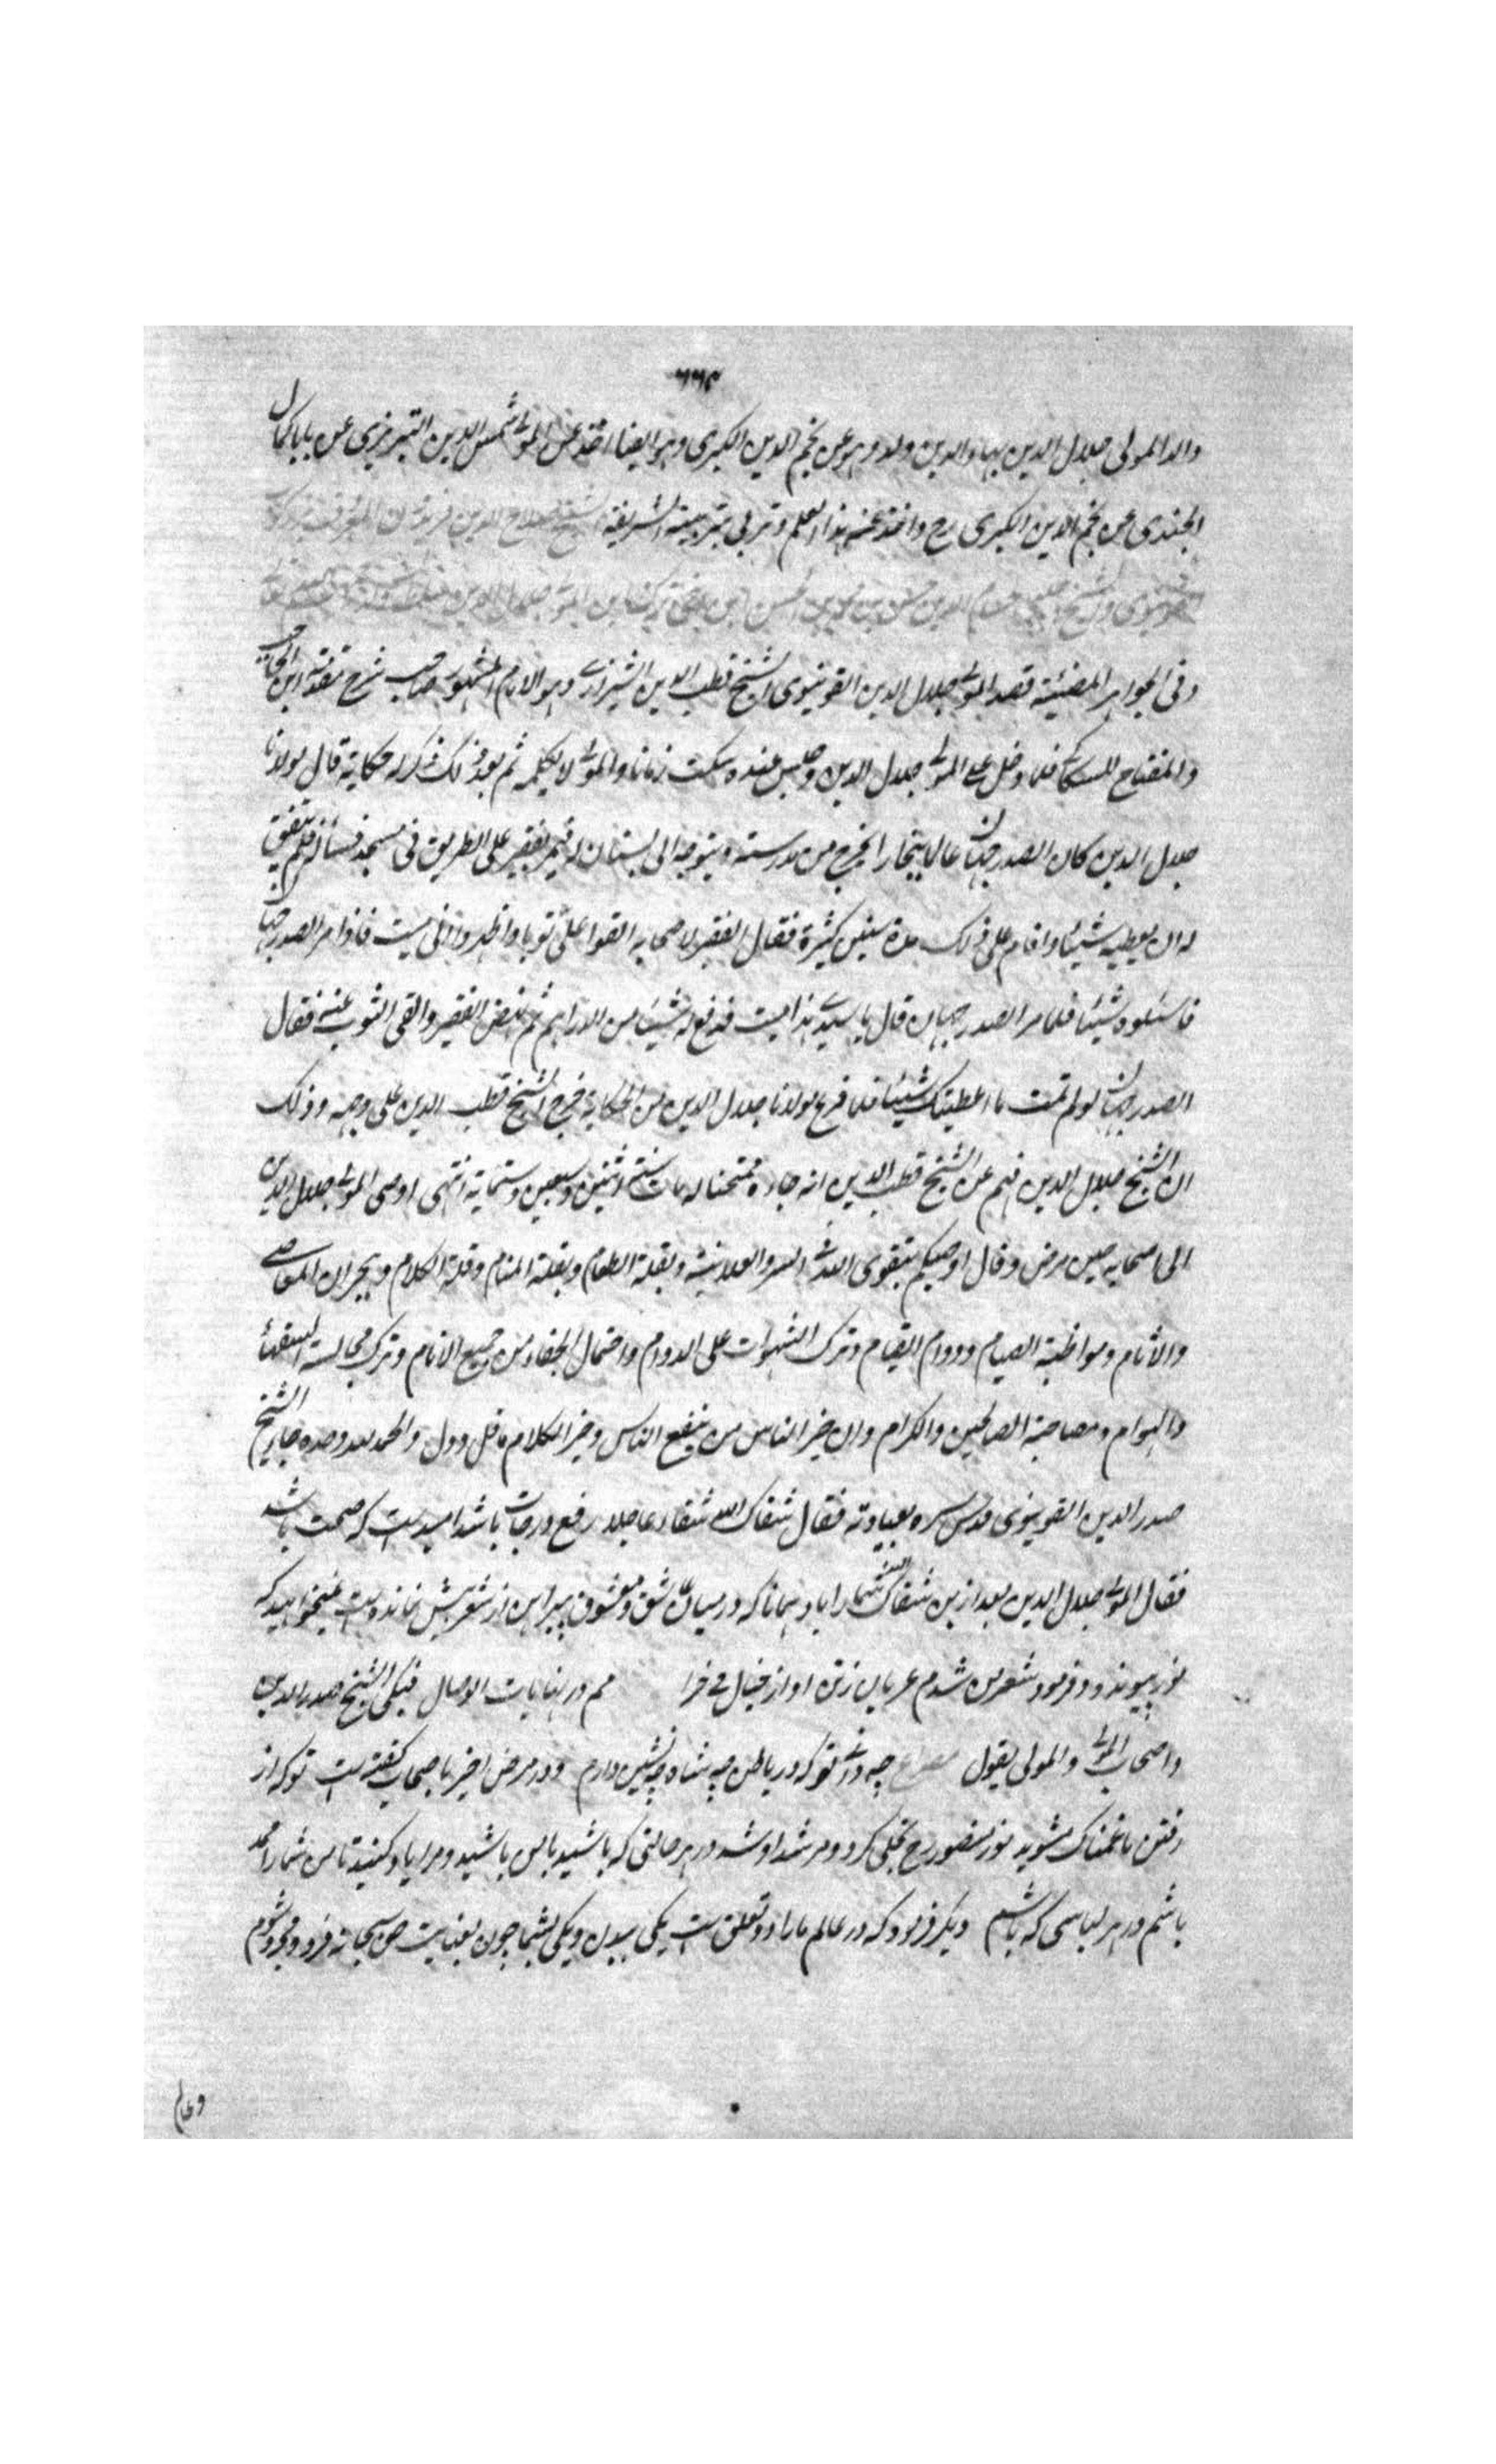 ٦٦٣
والد المولى جلال الدين بهاء الدين ولد وهو عن نجم الدين الكبرى وهو ايضا اخذ عن المولى شمس الدين التبريزي عن بابا كمال
الجندي عن نجم الدين الكبرى رح واخذ عنه هذا العلم وتربى بتربيته الشريفة الشيخ صلاح الدين فريدون
القونيوي والشيخ حسام الدين حسن بن محمد بن الحسن المولى جلال الدين
وفي الجواهر المضيئة قصد المولى جلال الدين القونيوي الشيخ قطب الدين الشيرازي وهو الامام المشهور صاحب شرح مقدمة ابن الحاجب
والمفتاح للسكاكي فلما دخل على المولى جلال الدين وجلس عنده سكت زمانا والمولى لا يكلمه ثم بعد ذلك ذكر له حكاية قال مولانا
جلال الدين كان الصدر جهان عالما ببخارا يخرج من مدرسته ويتوجه الى بستان له فيمر بفقير على الطريق في مسجد فسأله فلم يتفق
له ان يعطيه شيئا واقام على ذلك مدة سنين كثيرة فقال الفقير لاصحابه القوا علي ثوبا واظهروا اني ميت فاذا مر الصدر جهان
فاسئلوه شيئا فلما مر الصدر جهان قال يا سيدي هذا ميت فدفع له شيئا من الدراهم ثم نهض الفقير والقى الثوب عنه فقال
الصدر جهان لو لم تمت ما اعطيتك شيئا فلما فرغ مولانا جلال الدين من الحكاية خرج الشيخ قطب الدين على وجهه وذلك
ان الشيخ جلال الدين فهم عن الشيخ قطب الدين انه جاءه ممتحنا له مات سنة اثنين وسبعين وستماية انتهى اوصى المولى جلال الدين
الى اصحابه حين مرض وقال اوصيكم بتقوى الله في السر والعلانية وبقلة الطعام وبقلة المنام وقلة الكلام وهجران المعاصي
والاثام ومواظبة الصيام ودوام القيام وترك الشهوات على الدوام واحتمال الجفاء من جميع الانام وترك مجالسة السفهاء
والعوام ومصاحبة الصالحين والكرام وان خير الناس من ينفع الناس وخير الكلام ما قل ودل والحمد لله وحده جاء الشيخ
صدر الدين القونيوي قدس سره بعيادته فقال شفاك الله شفاء عاجلا رفع درجات باشد اميد است كه صحت باشد
فقال المولى جلال الدين بعد ازين شفاك الله شما را باد همانا كه درميان عاشق ومعشوق پيراهن از شعر بيش نمانده است نميخواهيد كه
نور بنور پيوندد وفرمود شعر من شدم عريان زتن او از خيال مي خرامم در نهايات الوصال فبكى الشيخ صدر الدين
واصحاب المولى والمولى يقول مصراع چه داني تو كه در باطن چه شاه همنشين دارم ودر مرض اخير باصحاب كفته است كه از
رفتن ما غمناك مشويد نور منصور رح تجلى كرد ومرشد او شد در هر حالتي كه باشيد با من باشيد ومرا ياد كنيد تا من شما را ممد
باشم در هر لباسي كه باشم ديكر فرمود كه در عالم ما را دو تعلق است يكي ببدن ويكي بشما چون بعنايت حق سبحانه فرد ومجرد شوم
وعالم